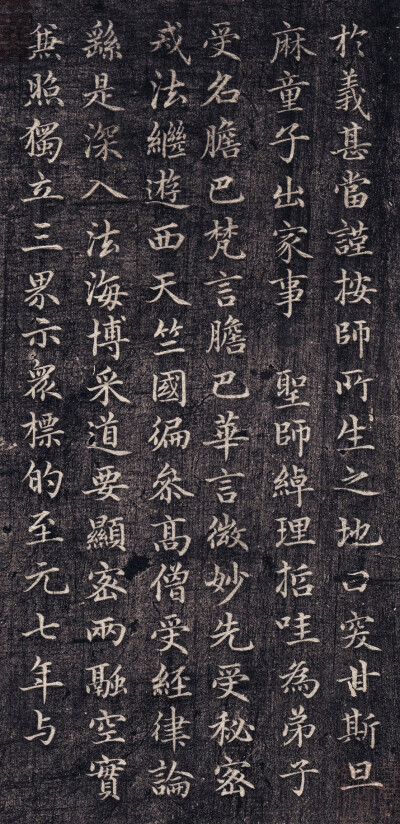 於義甚當謹按師所生之地曰突甘斯旦
麻童子出家事　聖師綽理哲哇為弟子
受名膽巴梵言膽巴華言微妙先受秘密
戒法繼遊西天竺國徧叅高僧受經律論
繇是深入法海博采道要顯密兩融空實
兼照獨立三界示衆標的至元七年与